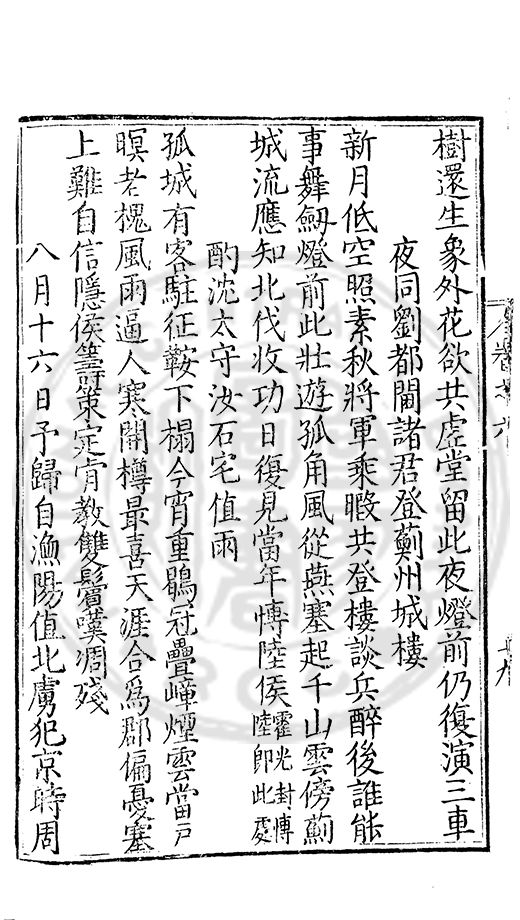 樹還生象外花欲共虛堂留此夜燈前仍復演三車
夜同劉都閫諸君登薊州城樓
新月低空照素秋將軍乘暇共登樓談兵醉後誰能
事舞劒燈前此壯遊孤角風從燕塞起千山雲傍薊
城流應知北伐收功日復見當年愽陸侯霍光封愽陸即此處
酌沈太守汝石宅值雨
孤城有客駐征鞍下榻今宵重鶡冠疊嶂煙雲當户
暝老槐風雨逼人寒開樽最喜天涯合為郡偏憂塞
上難自信隱侯籌策定肯教雙鬢嘆凋殘
八月十六日予歸自漁陽值北虜犯京時周